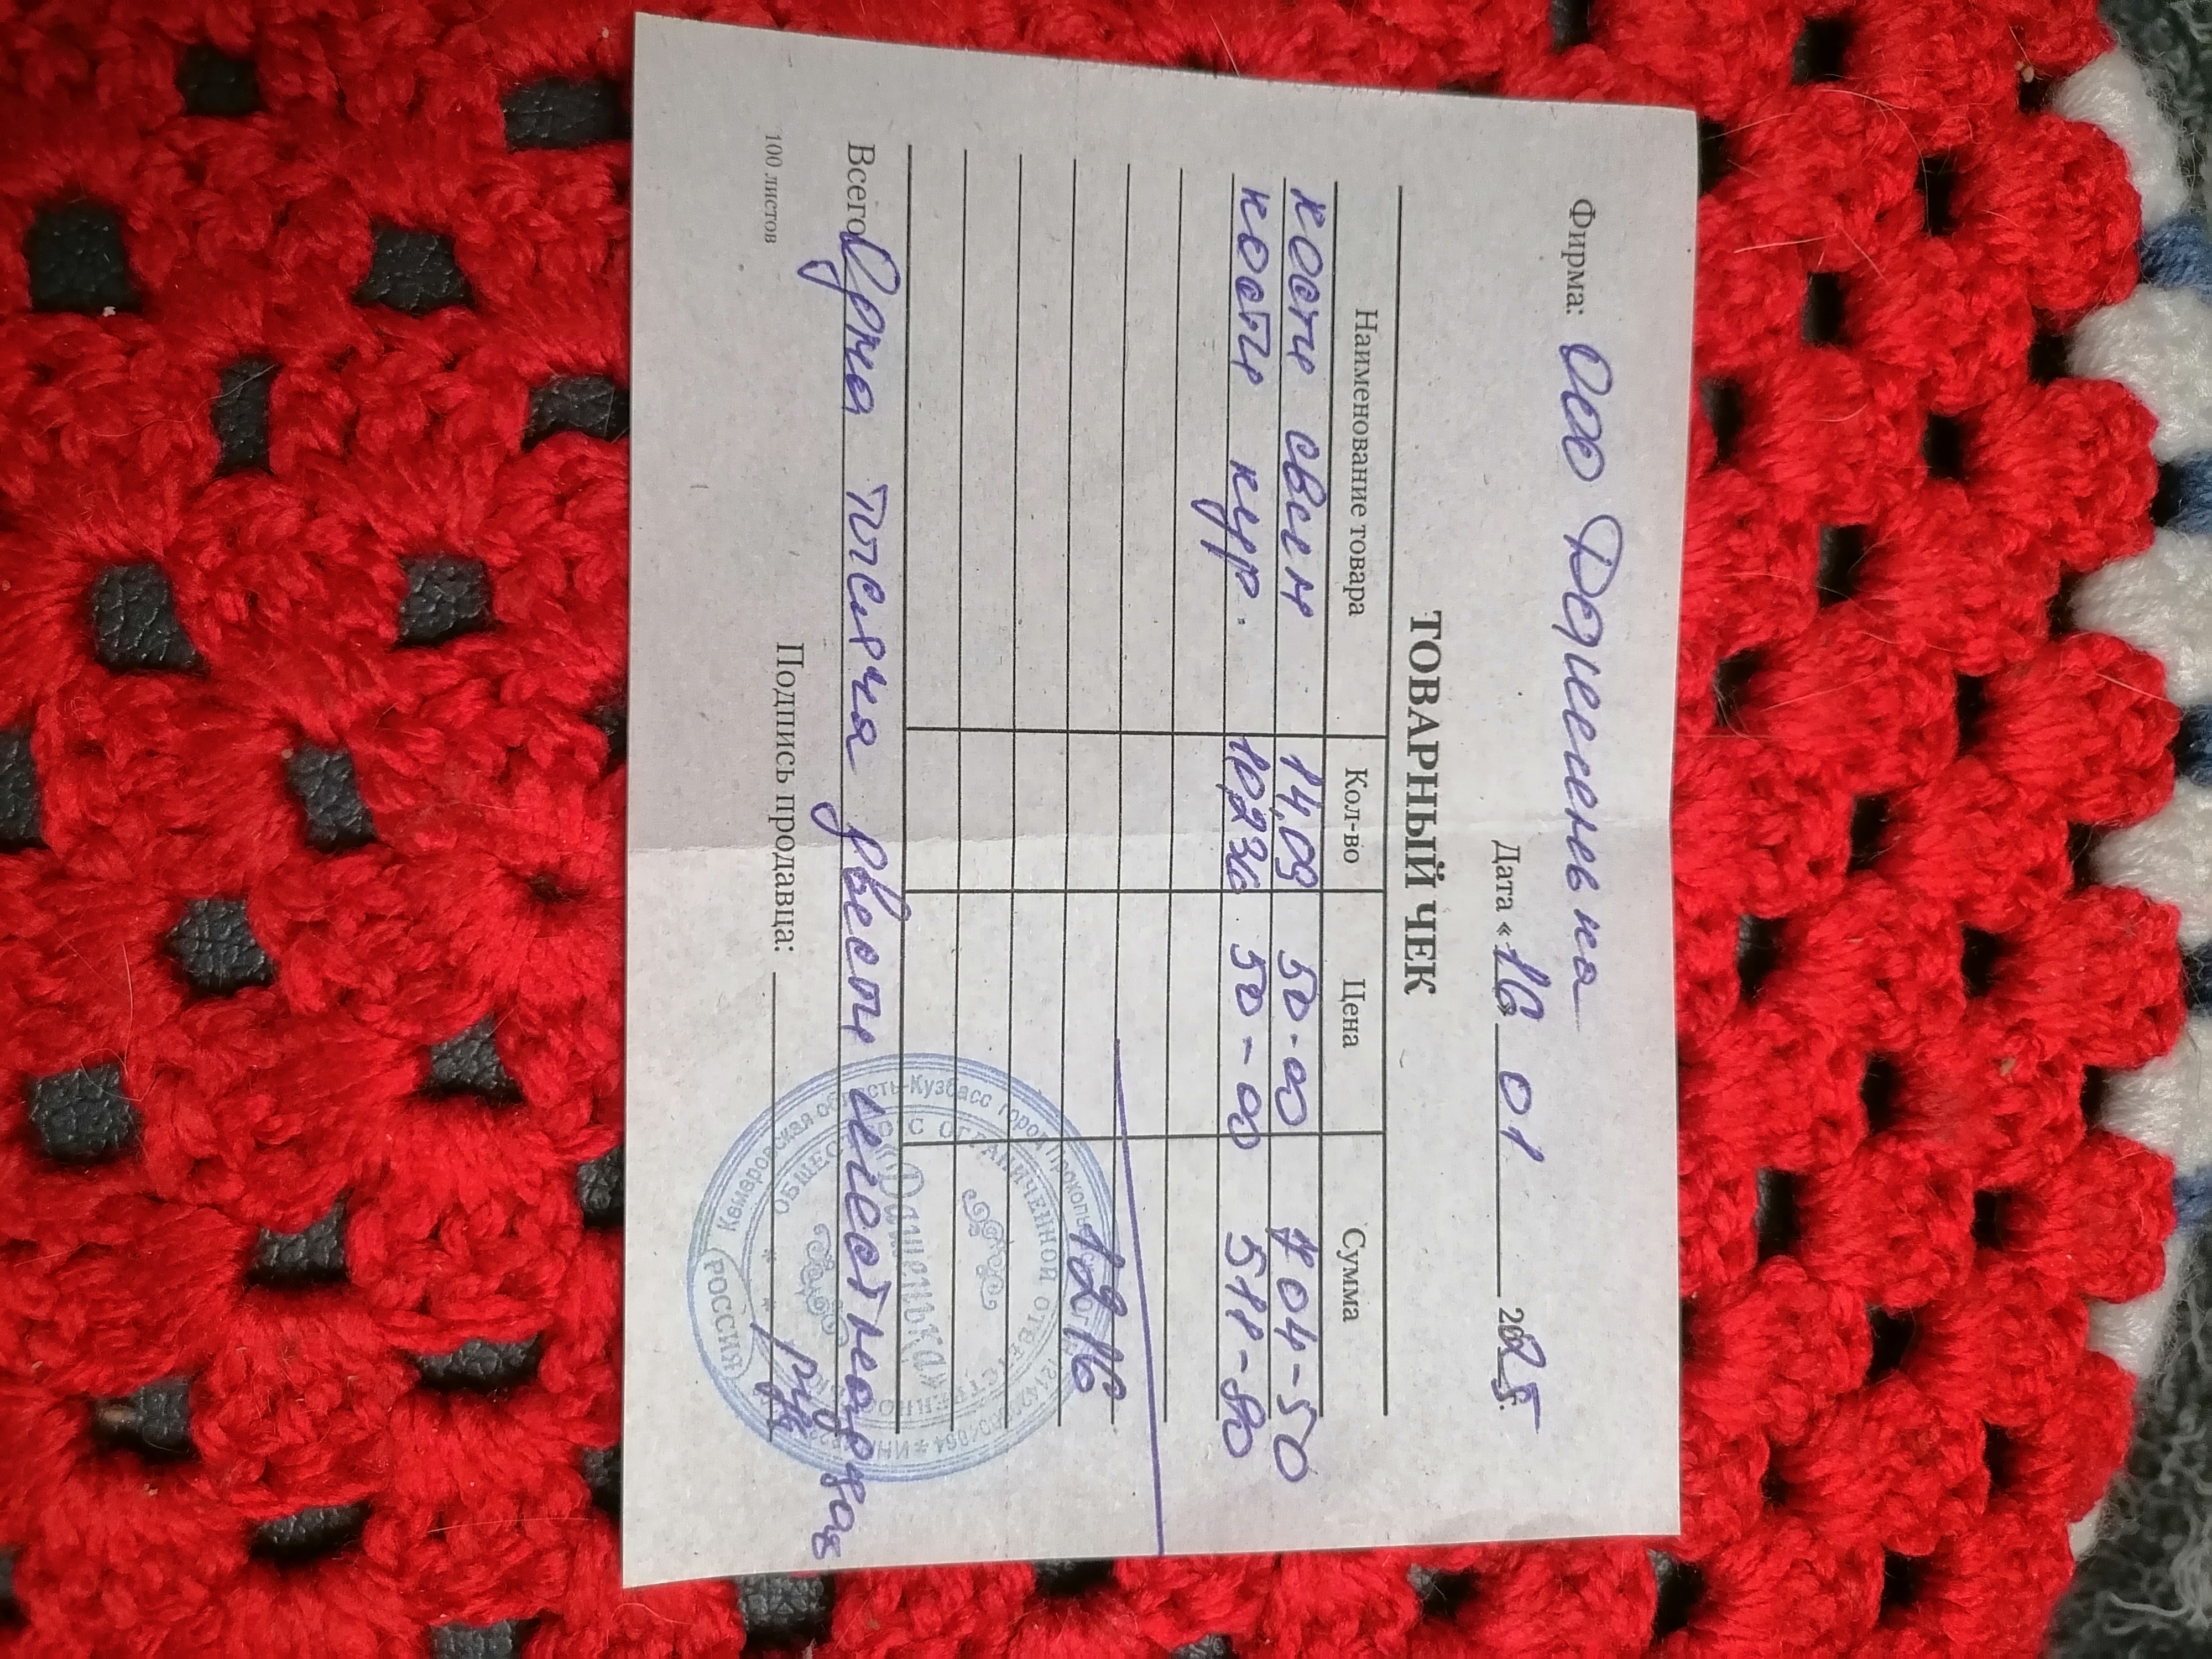 Фирма: ООО Дашенька
Дата «16» 01 2025г.
ТОВАРНЫЙ ЧЕК
Наименование товара Кол-во Цена Сумма
кости свин 14,09 50-00 704-50
кости кур. 10,236 50-00 511-80
1216
Всего Одна тысяча двести шестнадцать
руб
100 листов
Подпись продавца:
Кемеровская область-Кузбасс город Прокопьевск
ОБЩЕСТВО С ОГРАНИЧЕННОЙ ОТВЕТСТВЕННОСТЬЮ
«Дашенька»
РОССИЯ